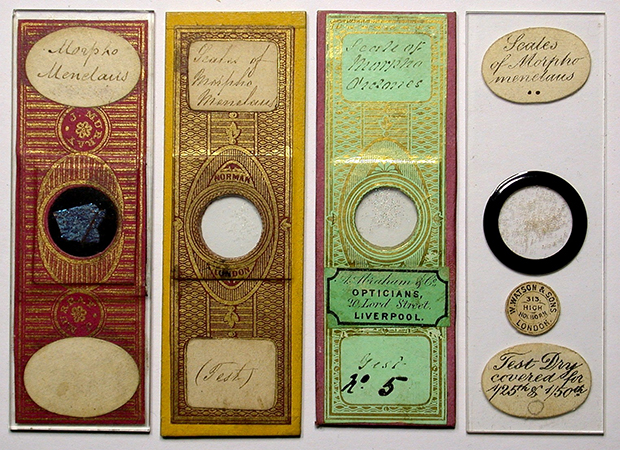 Morpho
Menelaus
J. MURRAY
Scales of
Morpho
Menelaus
NORMAN
LONDON
(Test)
Scale of
Morpho
Abraham & Co
OPTICIANS,
20 Lord Street.
LIVERPOOL.
Test
No 5
Scales
of Morpho
menelaus
W. WATSON & SONS
313,
HIGH
HOLBORN
LONDON.
Test Dry
covered for
1/25th & 1/50th